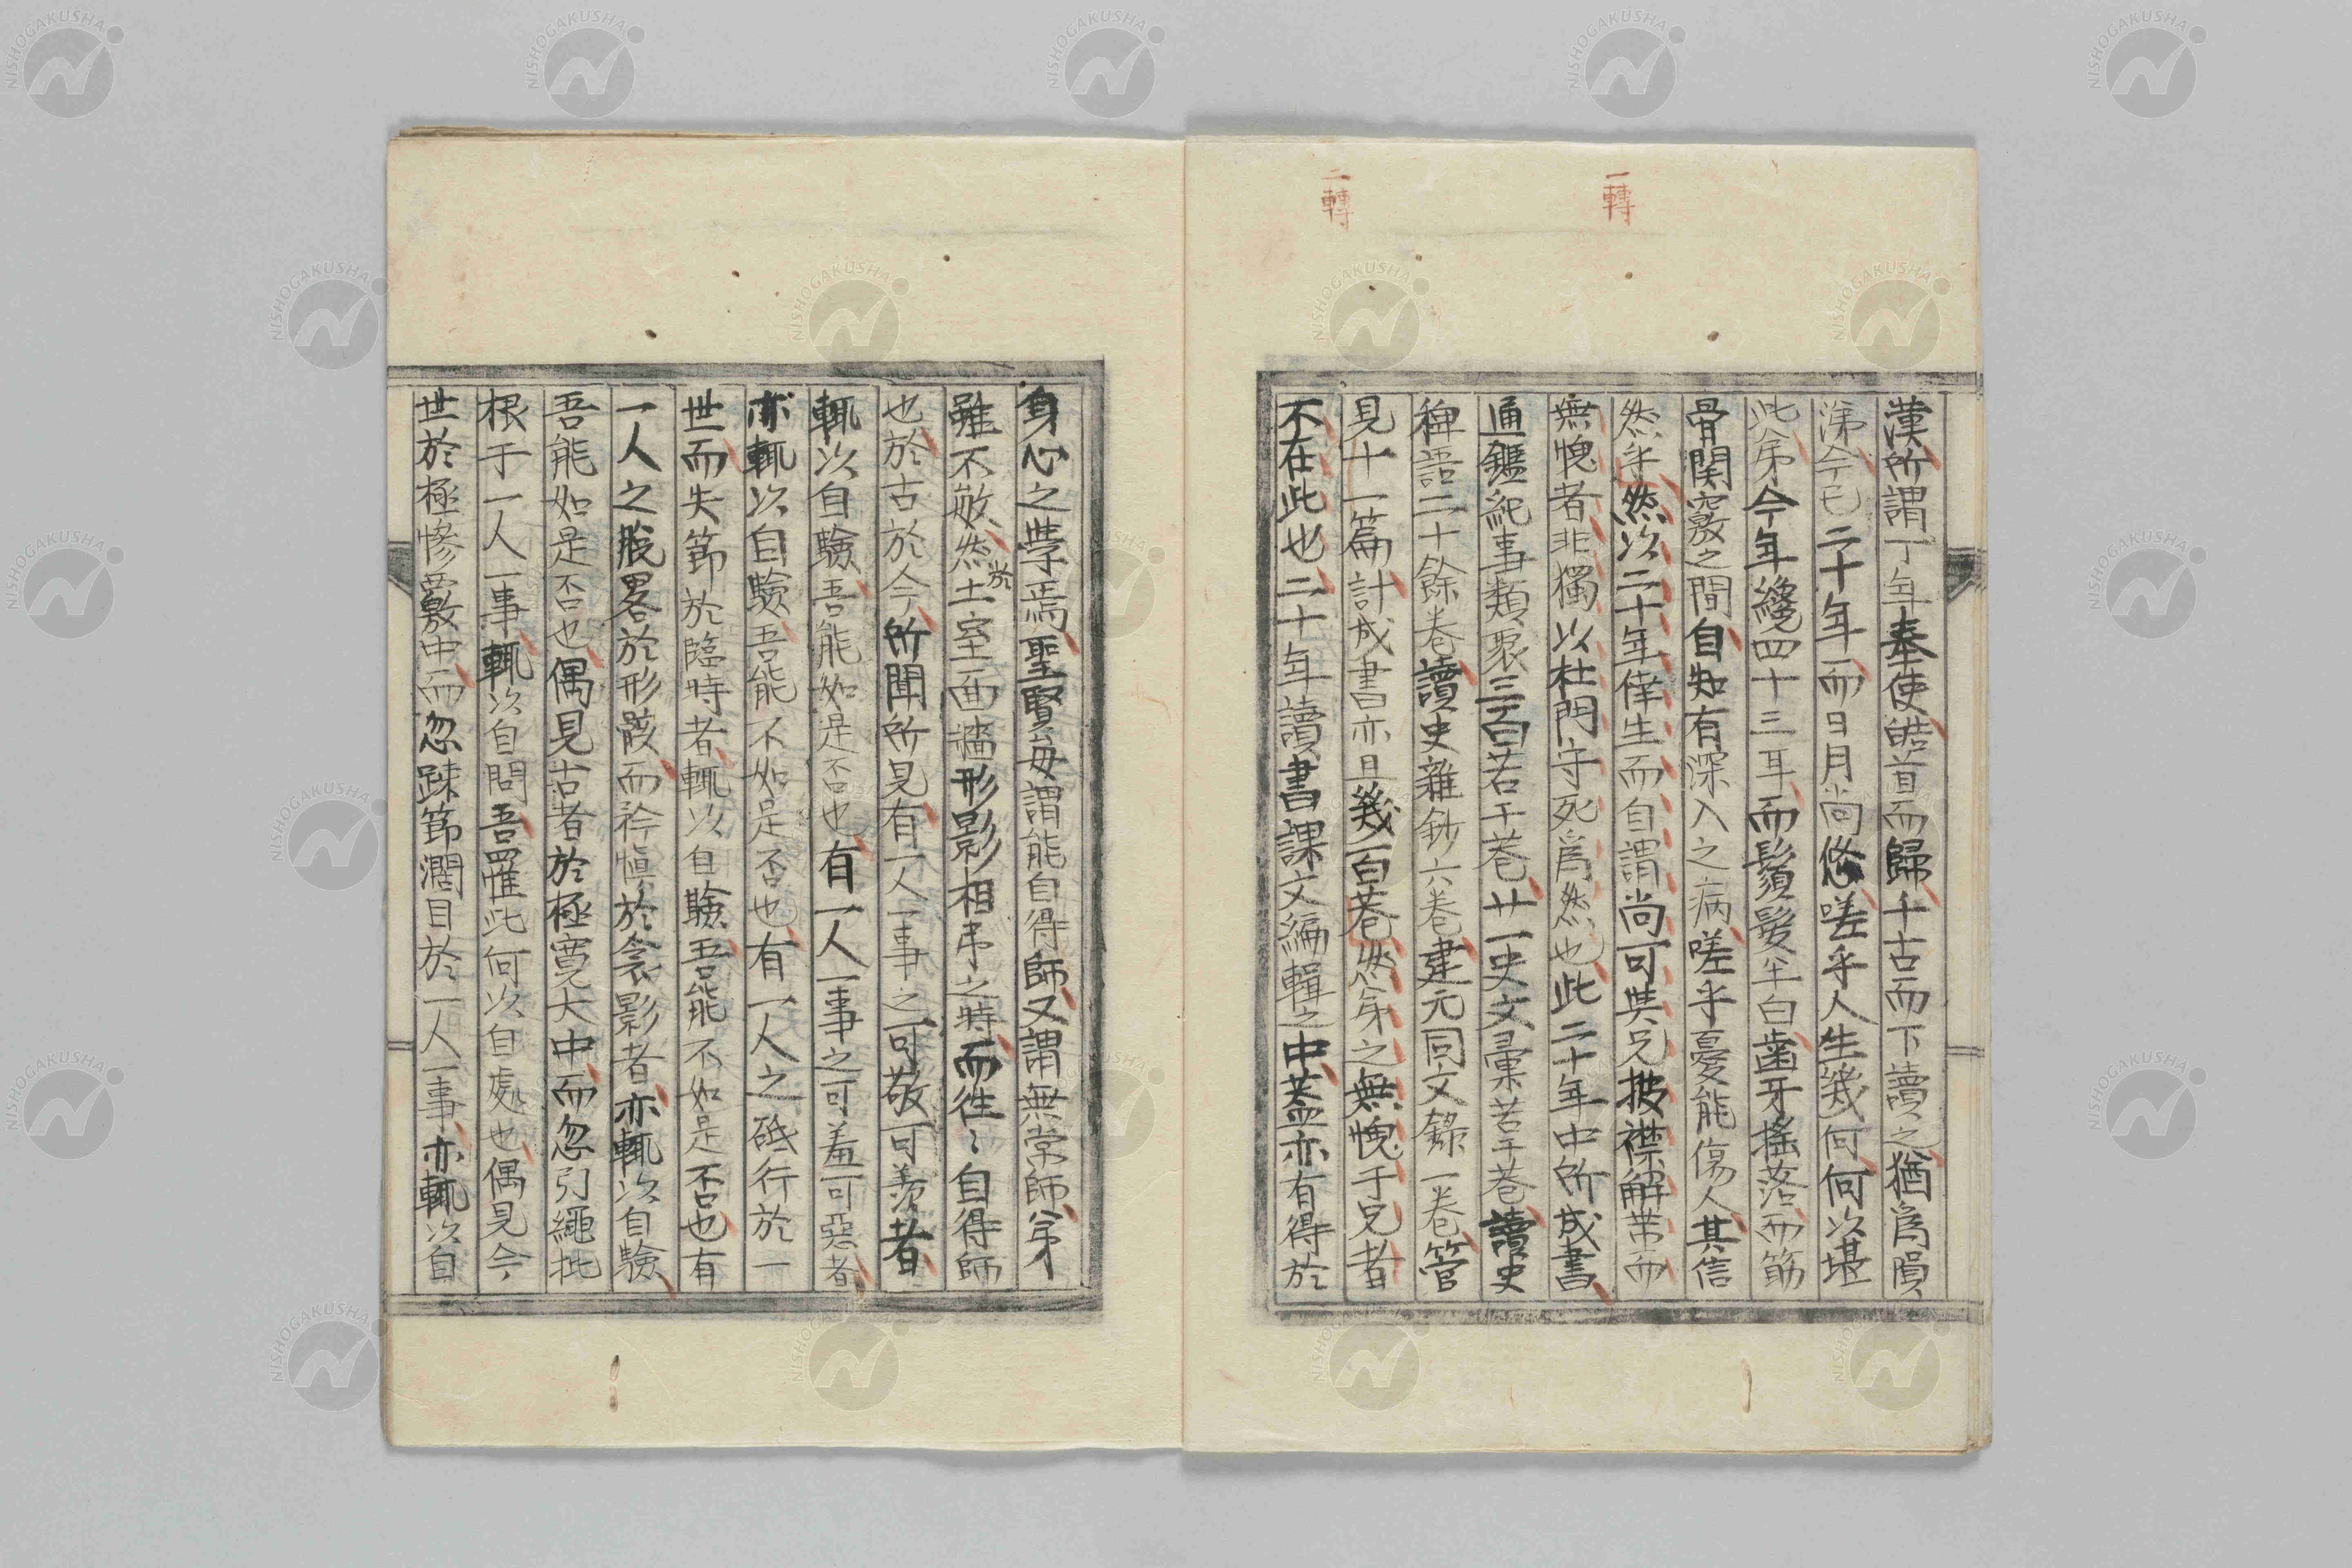 一轉
二轉
漢所謂丁年奉使皓首而歸千古而下讀之猶爲隕
涕今已二十年而日月尚悠嗟乎人生幾何何以堪
此弟今年纔四十三耳而鬚髮半白齒牙搖落而筋
骨関竅之間自知有深入之病嗟乎憂能傷人其信
然乎然以二十年倖生而自謂尚可與兄披襟解帶而
無愧者非獨以杜門守死爲然也此二十年中所成書
通鑑紀事類聚三百若干卷廿一史文彙若干卷讀史
稗語二十餘卷讀史雜鈔六卷建元同文錄一卷管
見十一篇計成書亦且幾百卷然弟之無愧于兄者
不在此也二十年讀書課文編輯之中葢亦有得於
身心之學焉聖賢毋謂能自得師又謂無常師弟
雖不敏然於土室面牆形影相弔之時而徃〻自得師
也於古於今所聞所見有一人一事之可敬可羨者
輒以自驗吾能如是否也有一人一事之可羞可惡者
亦輒以自驗吾能不如是否也有一人之砥行於一
世而失節於臨時者輒以自驗吾能不如是否也有
一人之脫畧於形骸而衿慎於衾影者亦輒以自驗
吾能如是否也偶見古者於極寛大中而忽引繩批
根于一人一事輒以自問吾罹此何以自處也偶見今
世於極慘覈中而忽踈節濶目於一人一事亦輒以自